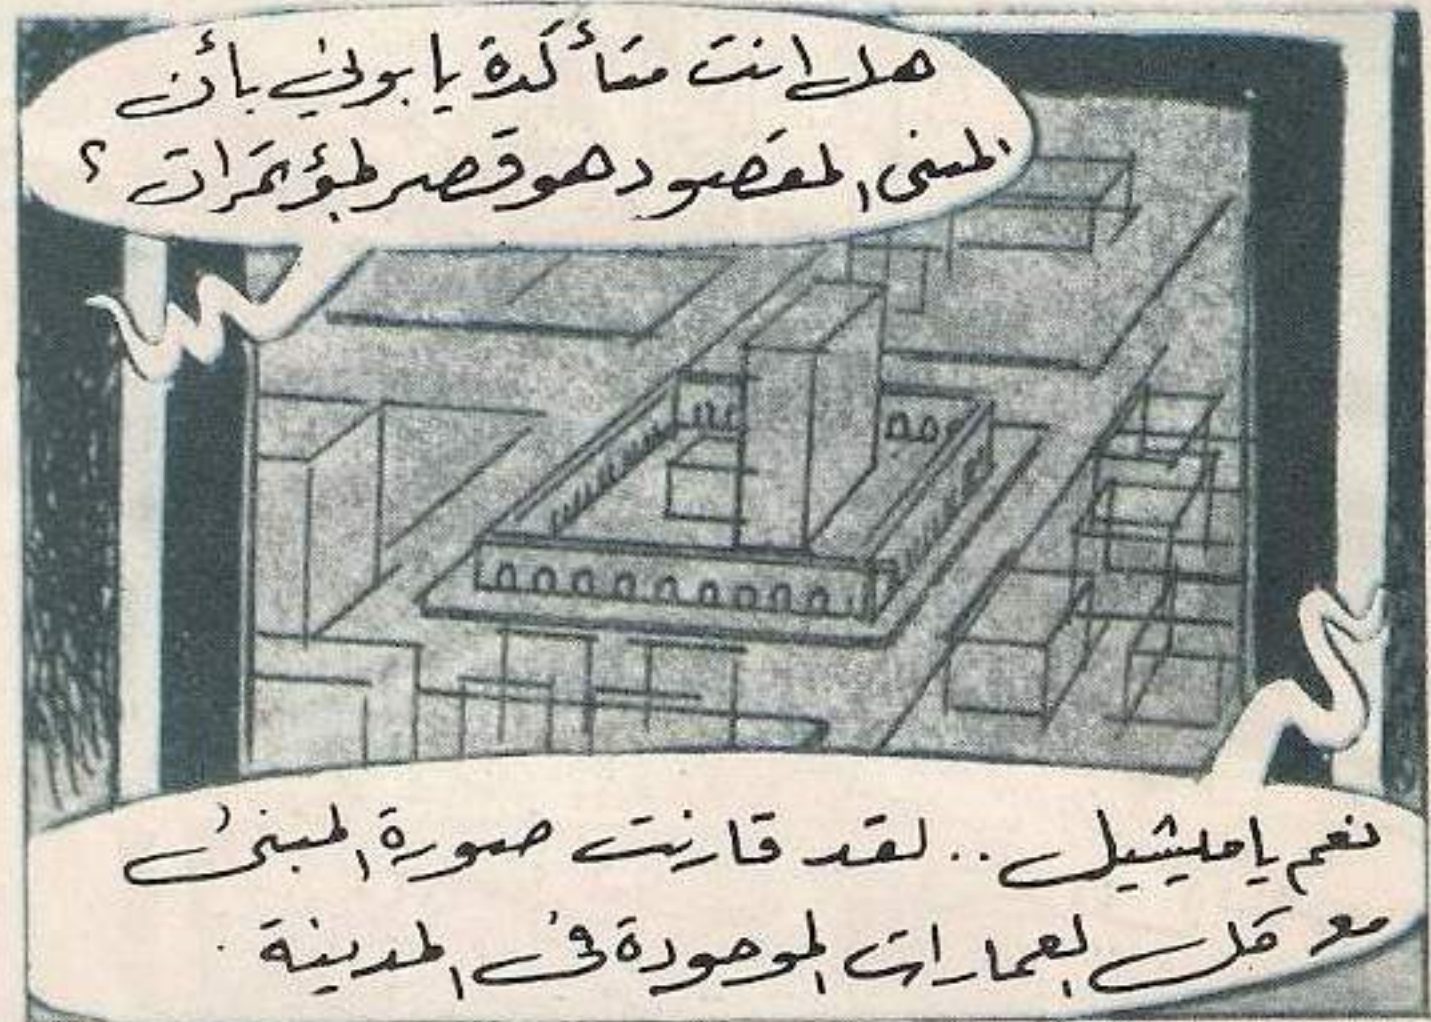 هل انت متأكدة يا بوني بأن
المبنى المقصود هو قصر المؤتمرات ؟
نعم يا ميشيل .. لقد قارنت صورة المبنى
مع كل العمارات الموجودة في المدينة .